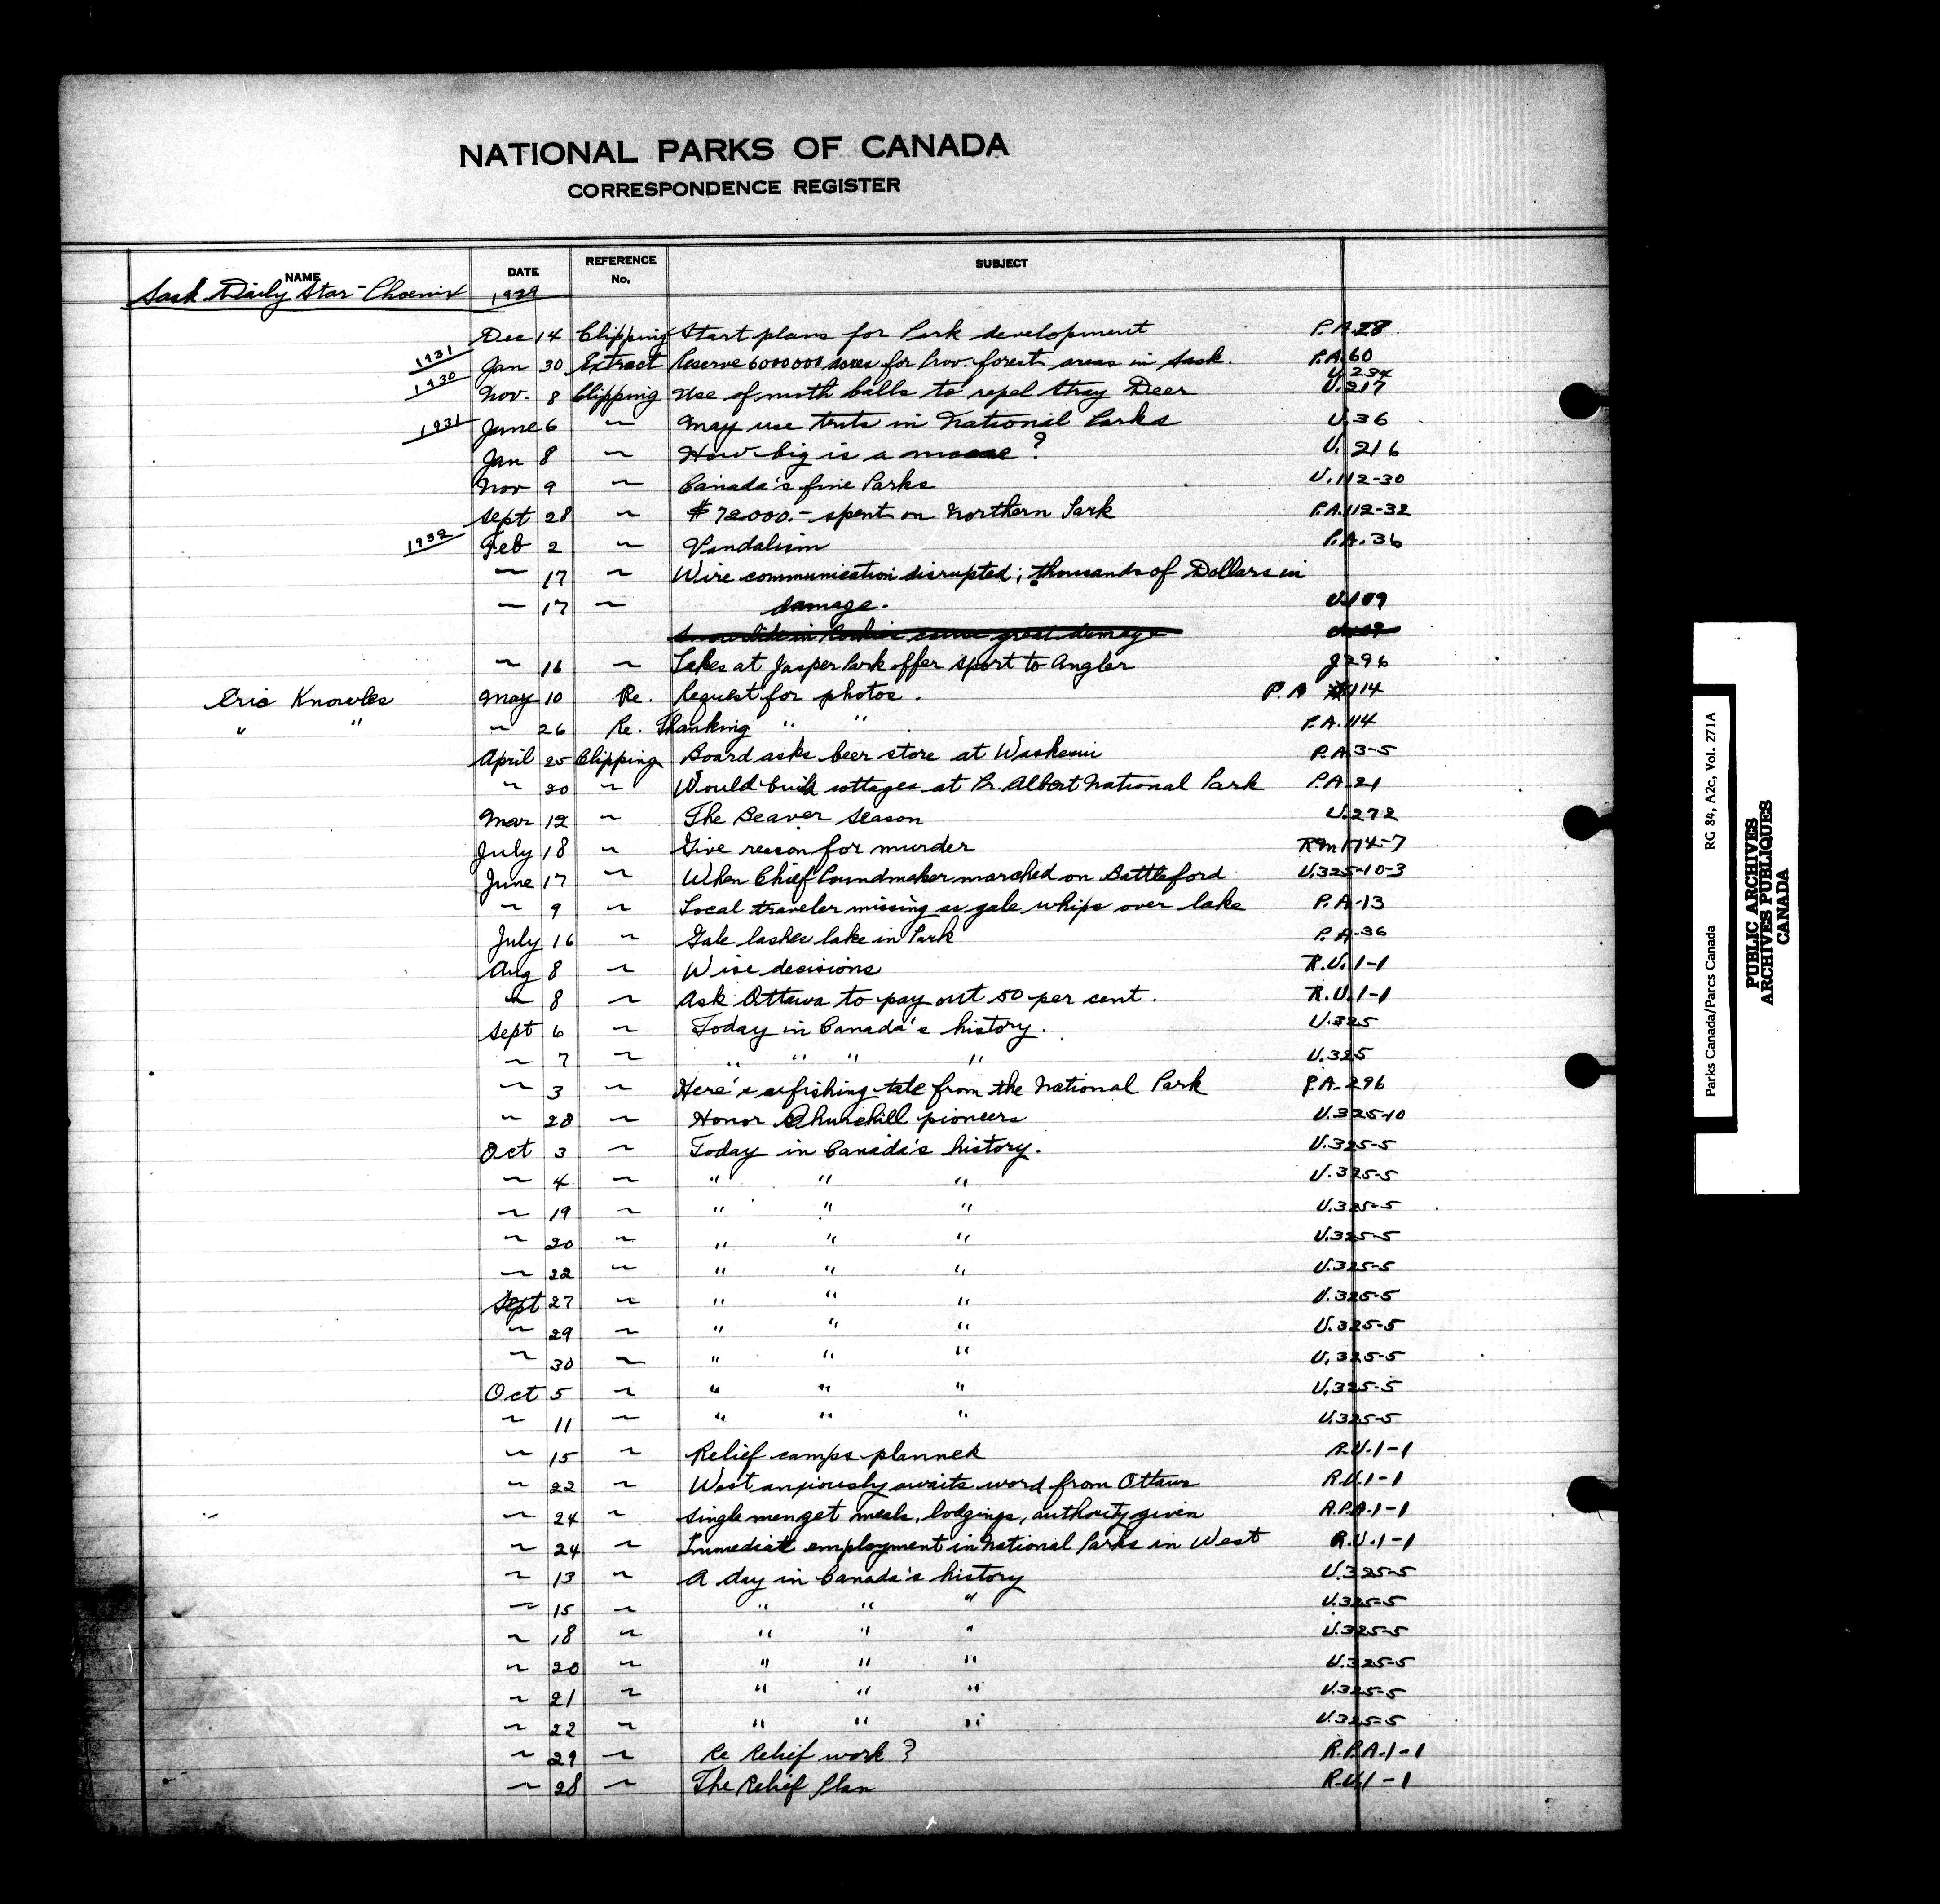 NATIONAL PARKS OF CANADA
CORRESPONDENCE REGISTER
NAME DATE REFERENCE No. SUBJECT
Sask Daily Star-Phoenix 1929
Dec 14 Clipping Start plans for Park development P.A.28
1931 Jan 30 Extract Reserve 6000000 acres for Prov. forest areas in Sask. P.A.60
U.234
1930 Nov. 8 Clipping Use of moth balls to repel stray Deer U.217
1931 June 6 〃 May use tents in National Parks U.36
Jan 8 〃 How big is a moose? U.216
Nov 9 〃 Canada's fine Parks U.112-30
Sept 28 〃 $72000.- spent on Northern Park P.A.112-32
1932 Feb 2 〃 Vandalism P.A.36
〃 17 〃 Wire communication disrupted; thousands of Dollars in
〃 17 〃 damage. U.109
〃 16 〃 Lakes at Jasper Park offer sport to Angler J296
Eric Knowles May 10 Re. Request for photos. P.A 114
" " 〃 26 Re. Thanking " " P.A.114
April 25 Clipping Board asks beer store at Waskesiu P.A.3-5
〃 20 〃 Would build cottages at Pr. Albert National Park P.A.21
Mar 12 〃 The Beaver Season U.272
July 18 〃 Give reason for murder RM174-7
June 17 〃 When Chief Poundmaker marched on Battleford U.325-10-3
〃 9 〃 Local traveler missing as gale whips over lake P.A-13
July 16 〃 Gale lashes lake in Park P.A-36
Aug 8 〃 Wise decisions R.U.1-1
〃 8 〃 Ask Ottawa to pay out 50 per cent. R.U.1-1
Sept 6 〃 Today in Canada's history. U.325
〃 7 〃 " " " " U.325
〃 3 〃 Here's a fishing tale from the National Park P.A.296
〃 28 〃 Honor Churchill pioneers U.325-10
Oct 3 〃 Today in Canada's history. U.325-5
〃 4 〃 " " " U.325-5
〃 19 〃 " " " U.325-5
〃 20 〃 " " " U.325-5
〃 22 〃 " " " U.325-5
Sept 27 〃 " " " U.325-5
〃 29 〃 " " " U.325-5
〃 30 〃 " " " U.325-5
Oct 5 〃 " " " U.325-5
〃 11 〃 " " " U.325-5
〃 15 〃 Relief camps planned R.U.1-1
〃 22 〃 West anxiously awaits word from Ottawa R.U.1-1
〃 24 〃 Single men get meals, lodgings, authority given R.P.A.1-1
〃 24 〃 Immediate employment in National Parks in West R.U.1-1
〃 13 〃 A day in Canada's history U.325-5
〃 15 〃 " " " U.325-5
〃 18 〃 " " " U.325-5
〃 20 〃 " " " U.325-5
〃 21 〃 " " " U.325-5
〃 22 〃 " " " U.325-5
〃 29 〃 Re Relief work? R.P.A.1-1
〃 28 〃 The Relief Plan R.U.1-1
Parks Canada/Parcs Canada RG 84, A2c, Vol. 271A
PUBLIC ARCHIVES
ARCHIVES PUBLIQUES
CANADA